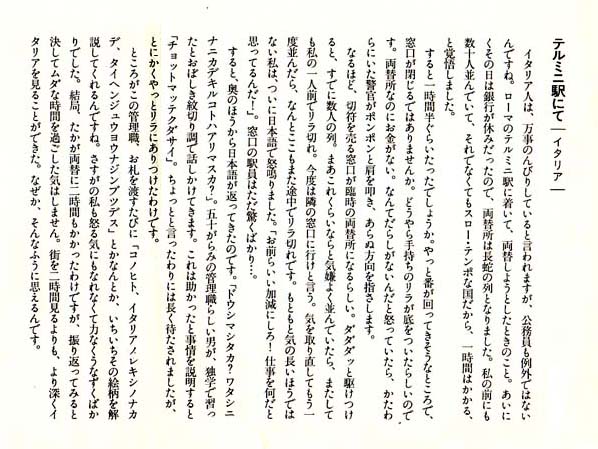 テルミニ駅にて―イタリア―
イタリア人は、万事のんびりしていると言われますが、公務員も例外ではない
んですね。ローマのテルミニ駅に着いて、両替しようとしたときのこと。あいに
くその日は銀行が休みだったので、両替所は長蛇の列となりました。私の前にも
数十人並んでいて、それでなくてもスロー・テンポな国だから、一時間はかかる、
と覚悟しました。
すると一時間半ぐらいたったでしょうか。やっと番が回ってきそうなところで、
窓口が閉じるではありませんか。どうやら手持ちのリラが底をついたらしいので
す。両替所なのにお金がない。なんてだらしがないんだと怒っていたら、かたわ
らにいた警官がポンポンと肩を叩き、あらぬ方向を指さします。
なるほど、切符を売る窓口が臨時の両替所になるらしい。ダダダッと駆けつけ
ると、すでに数人の列。まあこれくらいならと気嫌よく並んでいたら、またして
も私の一人前でリラ切れ。今度は隣の窓口に行けと言う。気を取り直してもう一
度並んだら、なんとここもまた途中でリラ切れです。もともと気の長いほうでは
ない私は、ついに日本語で怒鳴りました。「お前らいい加減にしろ!仕事を何だと
思ってるんだ!」。窓口の駅員はただ驚くばかり…。
すると、奥のほうから日本語が返ってきたのです。「ドウシマシタカ?ワタシニ
ナニカデキルコトハアリマスカ?」。五十がらみの管理職らしい男が、独学で習っ
たとおぼしき紋切り調で話しかけてきます。これは助かったと事情を説明すると
「チョットマッテクダサイ」。ちょっとと言ったわりには長く待たされましたが、
とにかくやっとリラにありつけたわけです。
ところがこの管理職、お札を渡すたびに「コノヒト、イタリアノレキシノナカ
デ、タイヘンジュウヨウナジンブツデス」とかなんとか、いちいちその絵柄を解
説してくれるんですね。さすがの私も怒る気にもなれなくて力なくうなずくばか
りでした。結局、たかが両替に二時間もかかったわけですが、振り返ってみると
決してムダな時間を過ごした気はしません。街を二時間見るよりも、より深くイ
タリアを見ることができた。なぜか、そんなふうに思えるんです。